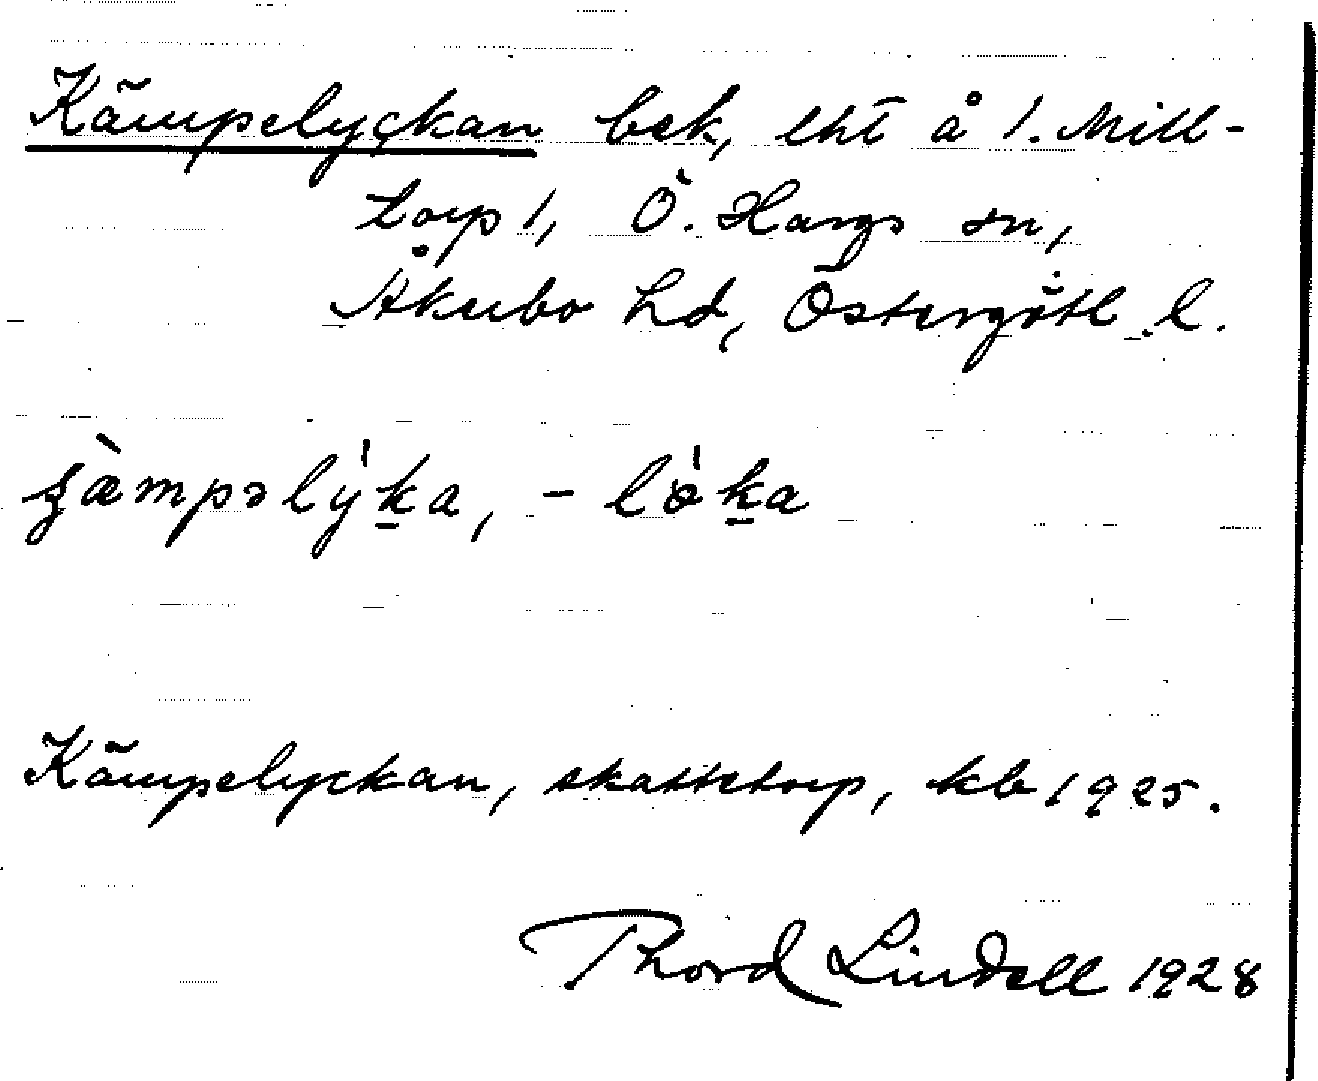 Kämpelyckan bek, lht å 1. Mill-
torp 1, Ö. Hargs sn,
Åkerbo hd, Östergötl. l.
jæ̀mpəlỳḵa, - lò̵ḵa
Kämpelyckan, skattetorp, kb 1925.
Thord Lindell 1928